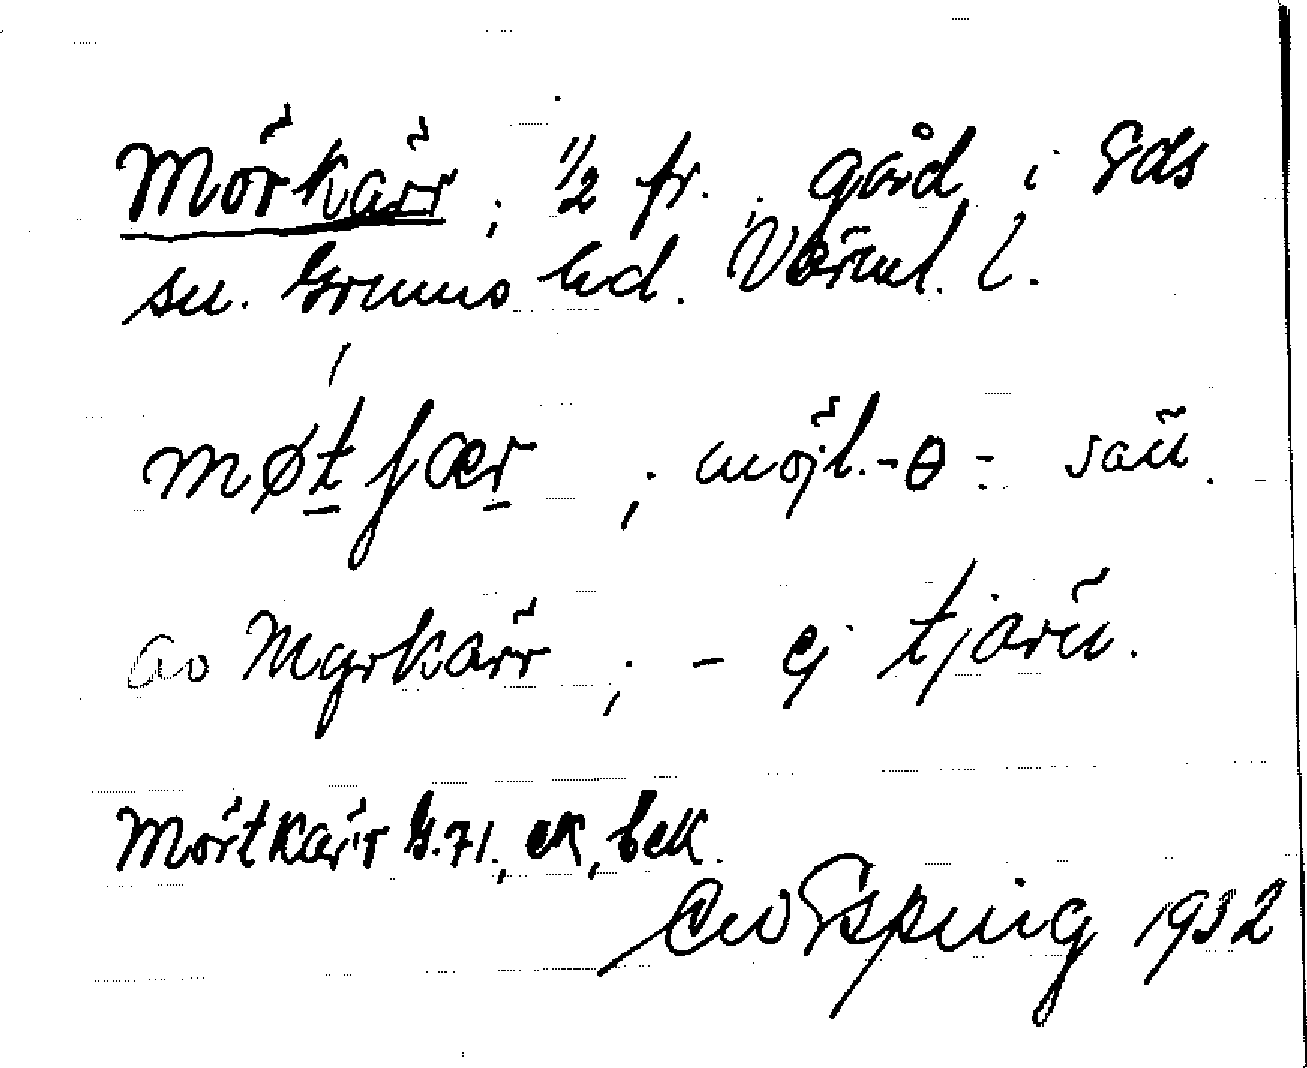 Mörkärr; 1/2 fr. gård i Eds
sn. Grums hd. Värml. l.
møtfær; möjl. -ø- sän.
av Myrkärr; - ej tjärn.
Mörtkärr G.71., ek, bek.
Esping 1932